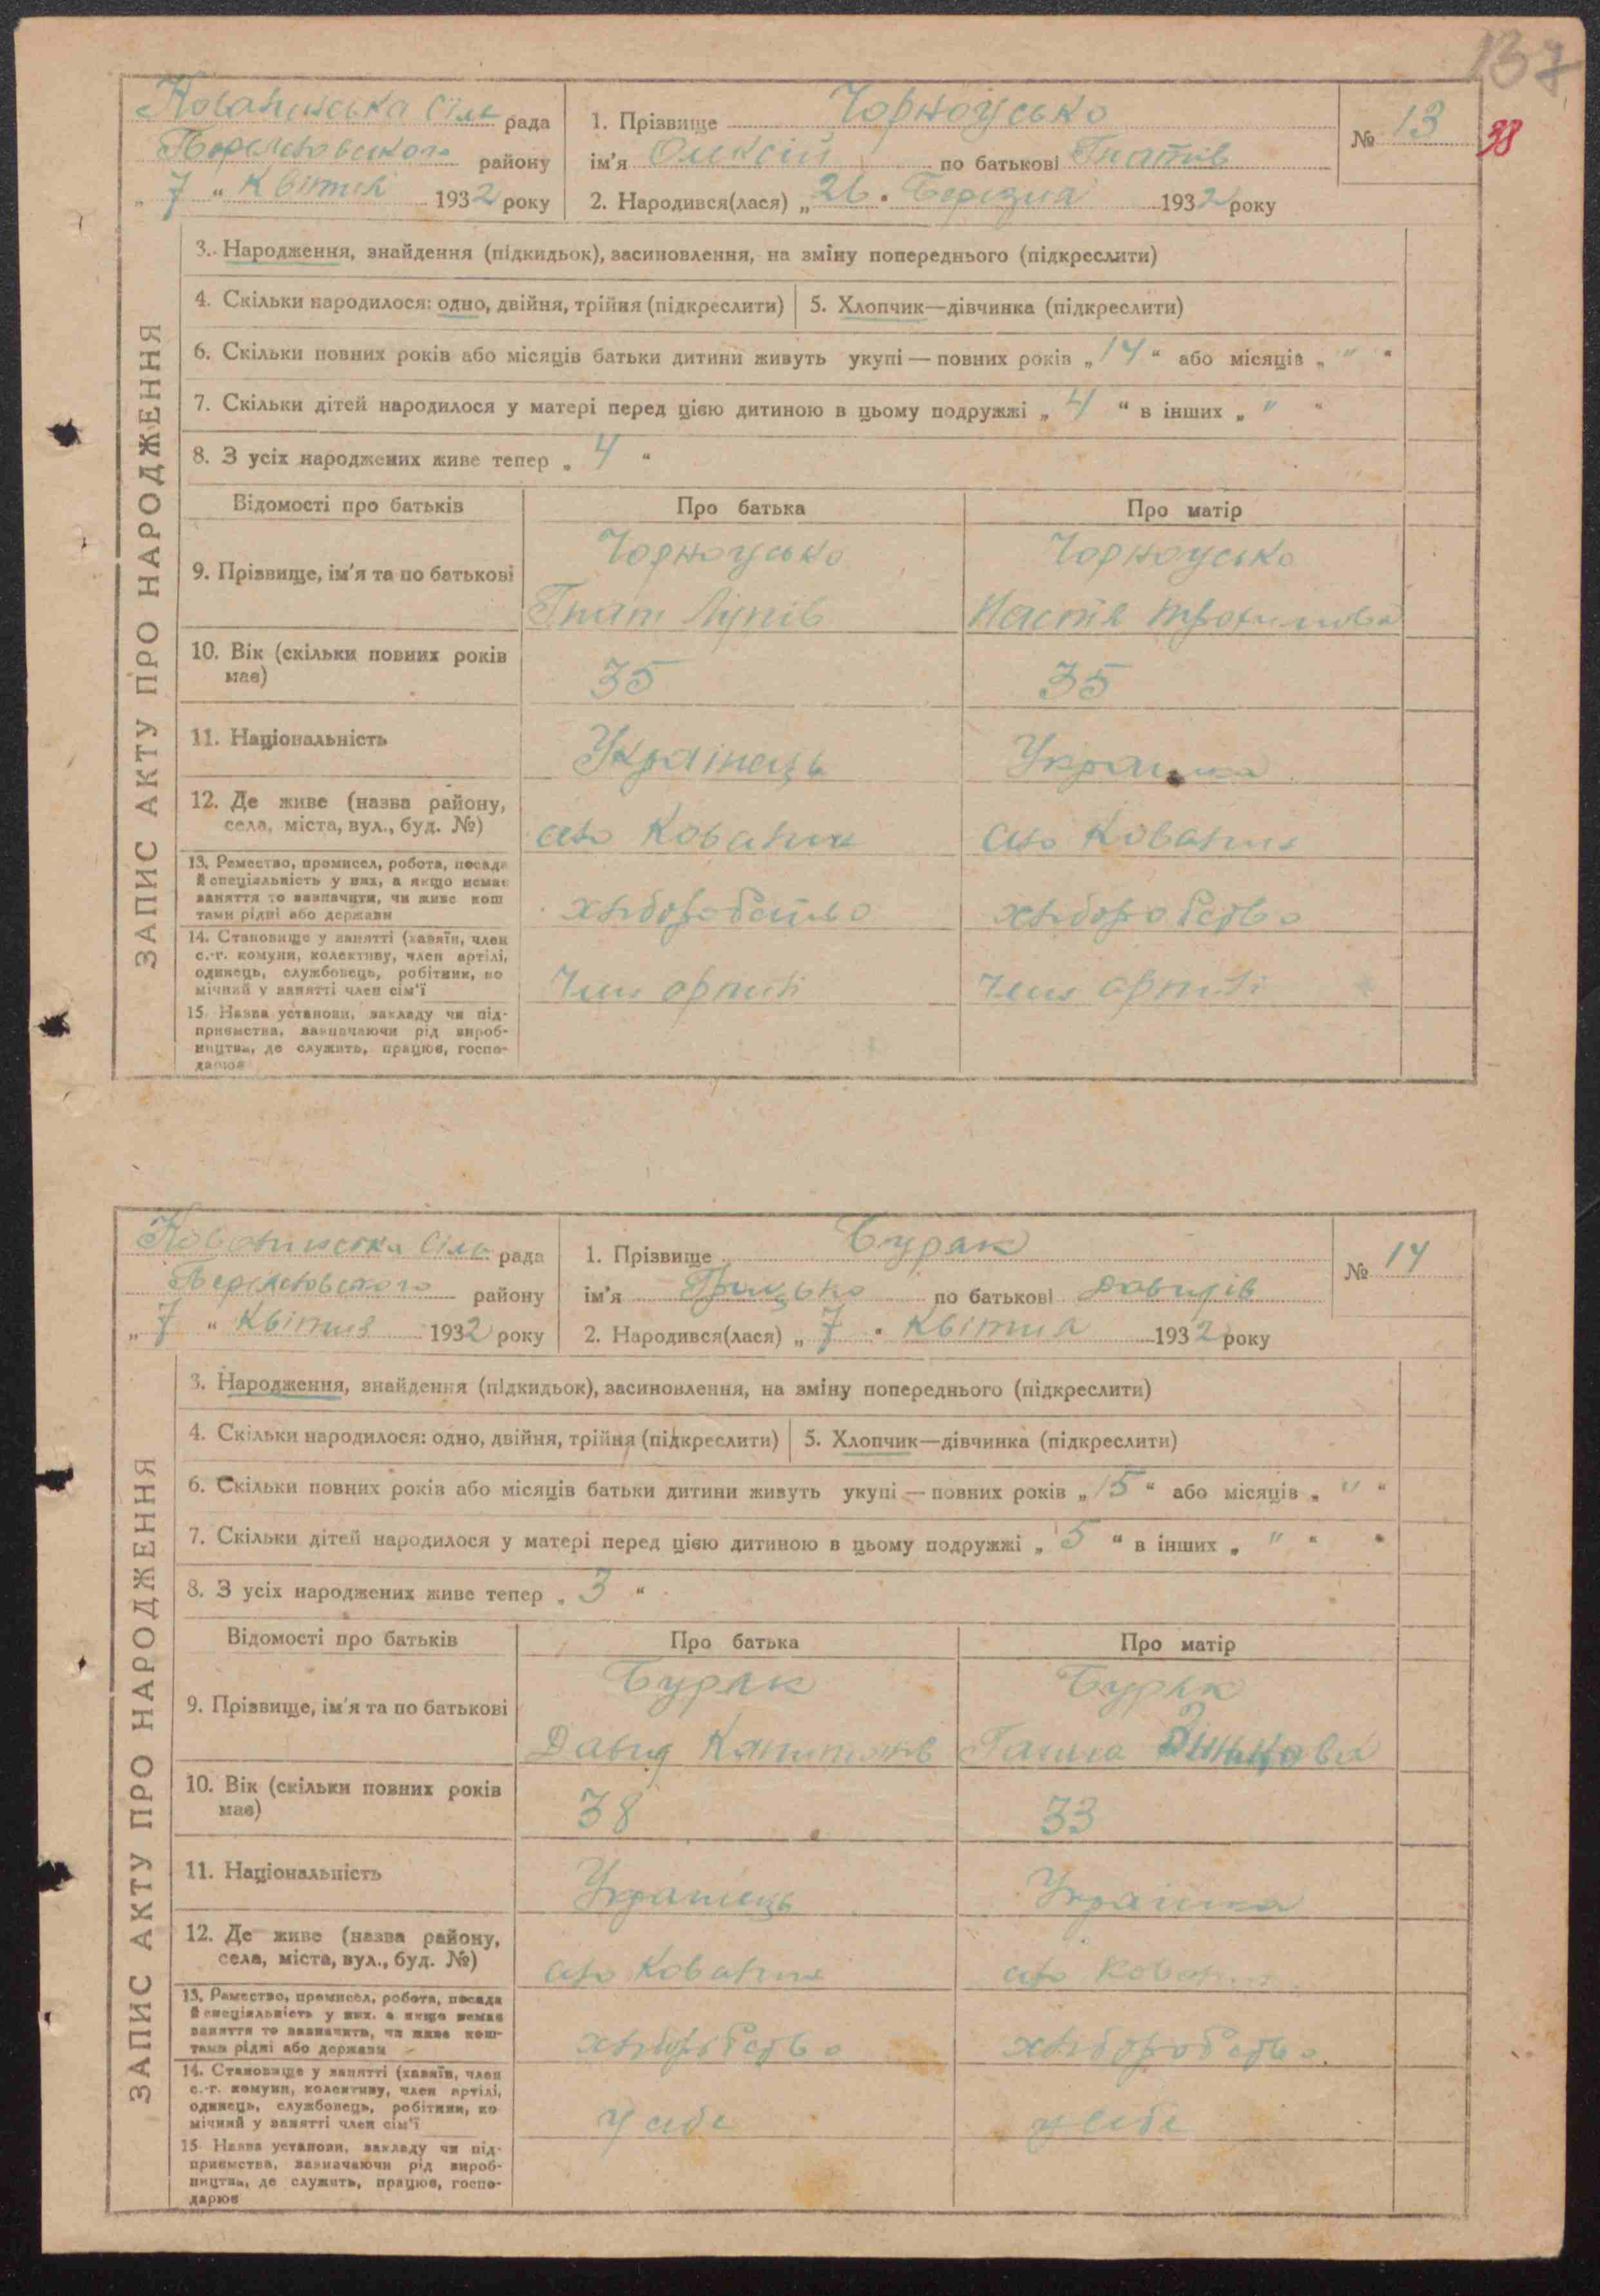 137
38
ЗАПИС АКТУ ПРО НАРОДЖЕННЯ
рада
району
„ 7 “ Квітня 1932 року
1. Прізвище Чорноусько
ім'я Олексій по батькові Гнатів
№ 13
2. Народився(лася) „ 26 “ Березня 1932 року
3. Народження, знайдення (підкидьок), засиновлення, на зміну попереднього (підкреслити)
4. Скільки народилося: одно, двійня, трійня (підкреслити)
5. Хлопчик—дівчинка (підкреслити)
6. Скільки повних років або місяців батьки дитини живуть укупі — повних років „ 14 “ або місяців „ " “
7. Скільки дітей народилося у матері перед цією дитиною в цьому подружжі „ 4 “ в інших „ " “
8. З усіх народжених живе тепер „ 4 “
Відомості про батьків
Про батька
Про матір
9. Прізвище, ім'я та по батькові
Чорноусько
Гнат
Чорноусько
Настя
10. Вік (скільки повних років
має)
35
35
11. Національність
Українець
Українка
12. Де живе (назва району,
села, міста, вул., буд. №)
13. Ремество, промисел, робота, посада
й спеціяльність у них, а якщо немає
заняття то зазначити, чи живе кош
тами рідні або держави
хліборобство
хліборобство
14. Становище у занятті (хазяїн, член
с.-г. комуни, колективу, член артілі,
одинець, службовець, робітник, по
мічний у занятті член сім'ї
Член артілі
Член артілі
15. Назва установи, закладу чи під-
приємства, зазначаючи рід вироб-
ництва, де служить, працює, госпо-
дарює
ЗАПИС АКТУ ПРО НАРОДЖЕННЯ
рада
району
„ 7 “ Квітня 1932 року
1. Прізвище Бурак
ім'я Грицько по батькові Давидів
№ 14
2. Народився(лася) „ 7 “ Квітня 1932 року
3. Народження, знайдення (підкидьок), засиновлення, на зміну попереднього (підкреслити)
4. Скільки народилося: одно, двійня, трійня (підкреслити)
5. Хлопчик—дівчинка (підкреслити)
6. Скільки повних років або місяців батьки дитини живуть укупі — повних років „ 15 “ або місяців „ " “
7. Скільки дітей народилося у матері перед цією дитиною в цьому подружжі „ 5 “ в інших „ " “
8. З усіх народжених живе тепер „ 3 “
Відомості про батьків
Про батька
Про матір
9. Прізвище, ім'я та по батькові
Бурак
Давид
Бурак
Ганна
10. Вік (скільки повних років
має)
38
33
11. Національність
Українець
Українка
12. Де живе (назва району,
села, міста, вул., буд. №)
13. Ремество, промисел, робота, посада
й спеціяльність у них, а якщо немає
заняття то зазначити, чи живе кош-
тами рідні або держави
хліборобство
хліборобство
14. Становище у занятті (хазяїн, член
с.-г. комуни, колективу, член артілі,
одинець, службовець, робітник, по
мічний у занятті член сім'ї
у себе
у себе
15. Назва установи, закладу чи під-
приємства, зазначаючи рід вироб-
ництва, де служить, працює, госпо-
дарює